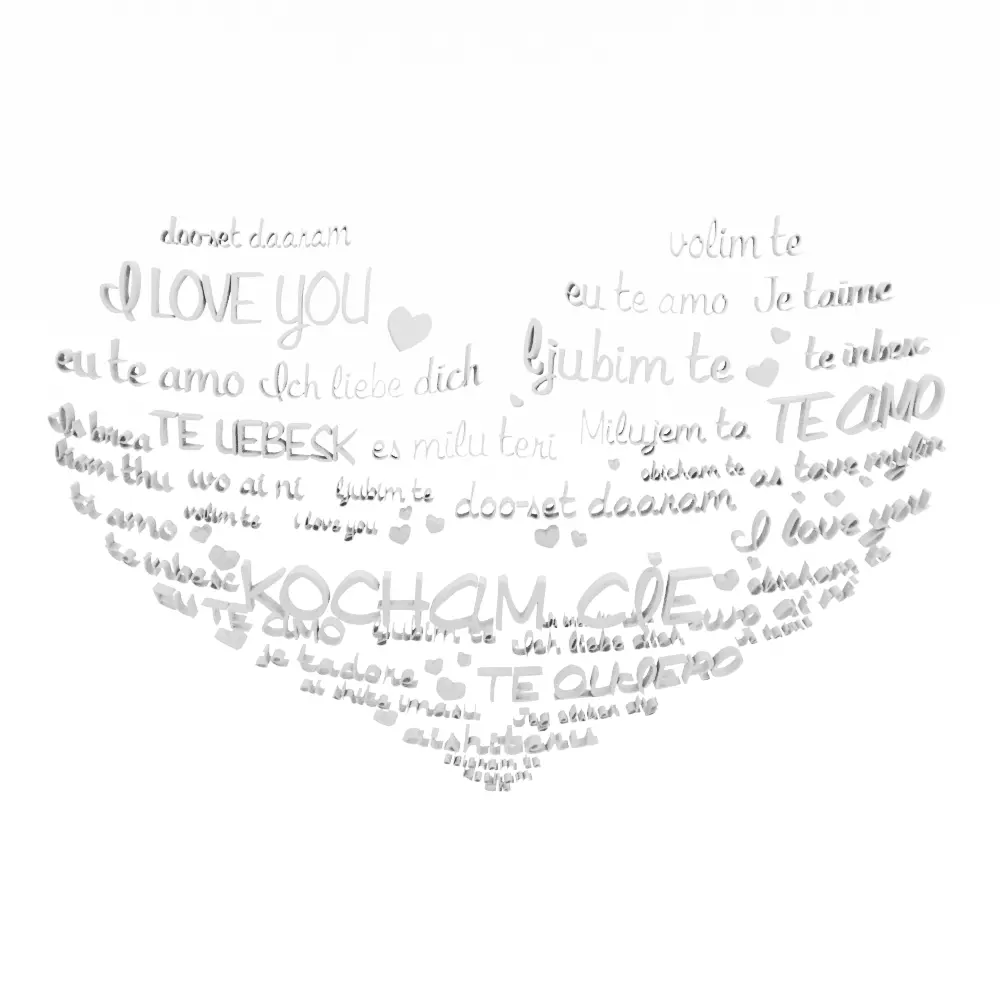 doo-set daaram volim te
I LOVE YOU eu te amo Je taime
eu te amo Ich liebe dich ljubim te te inbesc
Is brea TE LIEBESK es milu teri Milujem ta TE AMO
hom thu wo ai ni ljubim te doo-set daaram obicham te as tave myliu
ti amo volim te i love you I love you
te inbesc KOCHAM CIE obicham te
EU TE AMO ljubim te Ich liebe dich wo ai ni
je t'adore TE QUIERO
ai shite imasu Jeg elsker dig
aishiteru